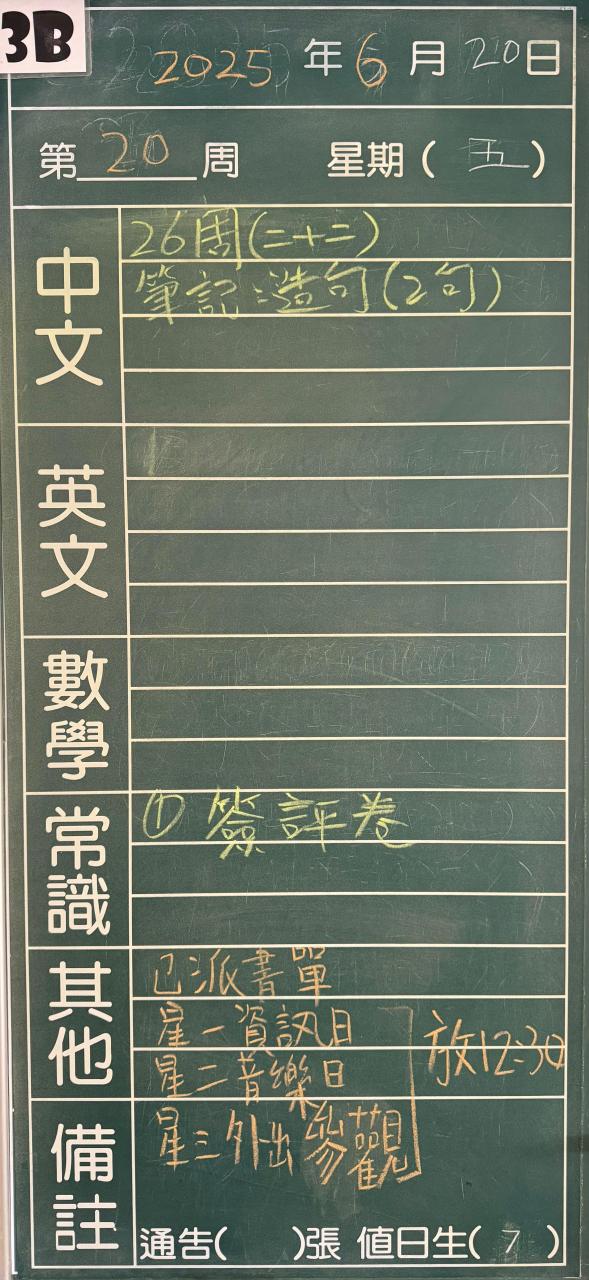 3B
2025年6月20日
第20周 星期(五)
中文
26周(二十二)
筆記:造句(2句)
英文
數學
常識
① 簽評卷
其他
已派書單
星一資訊日
星二音樂日
放12:30
備註
星三外出參觀
通告( )張 值日生(7)